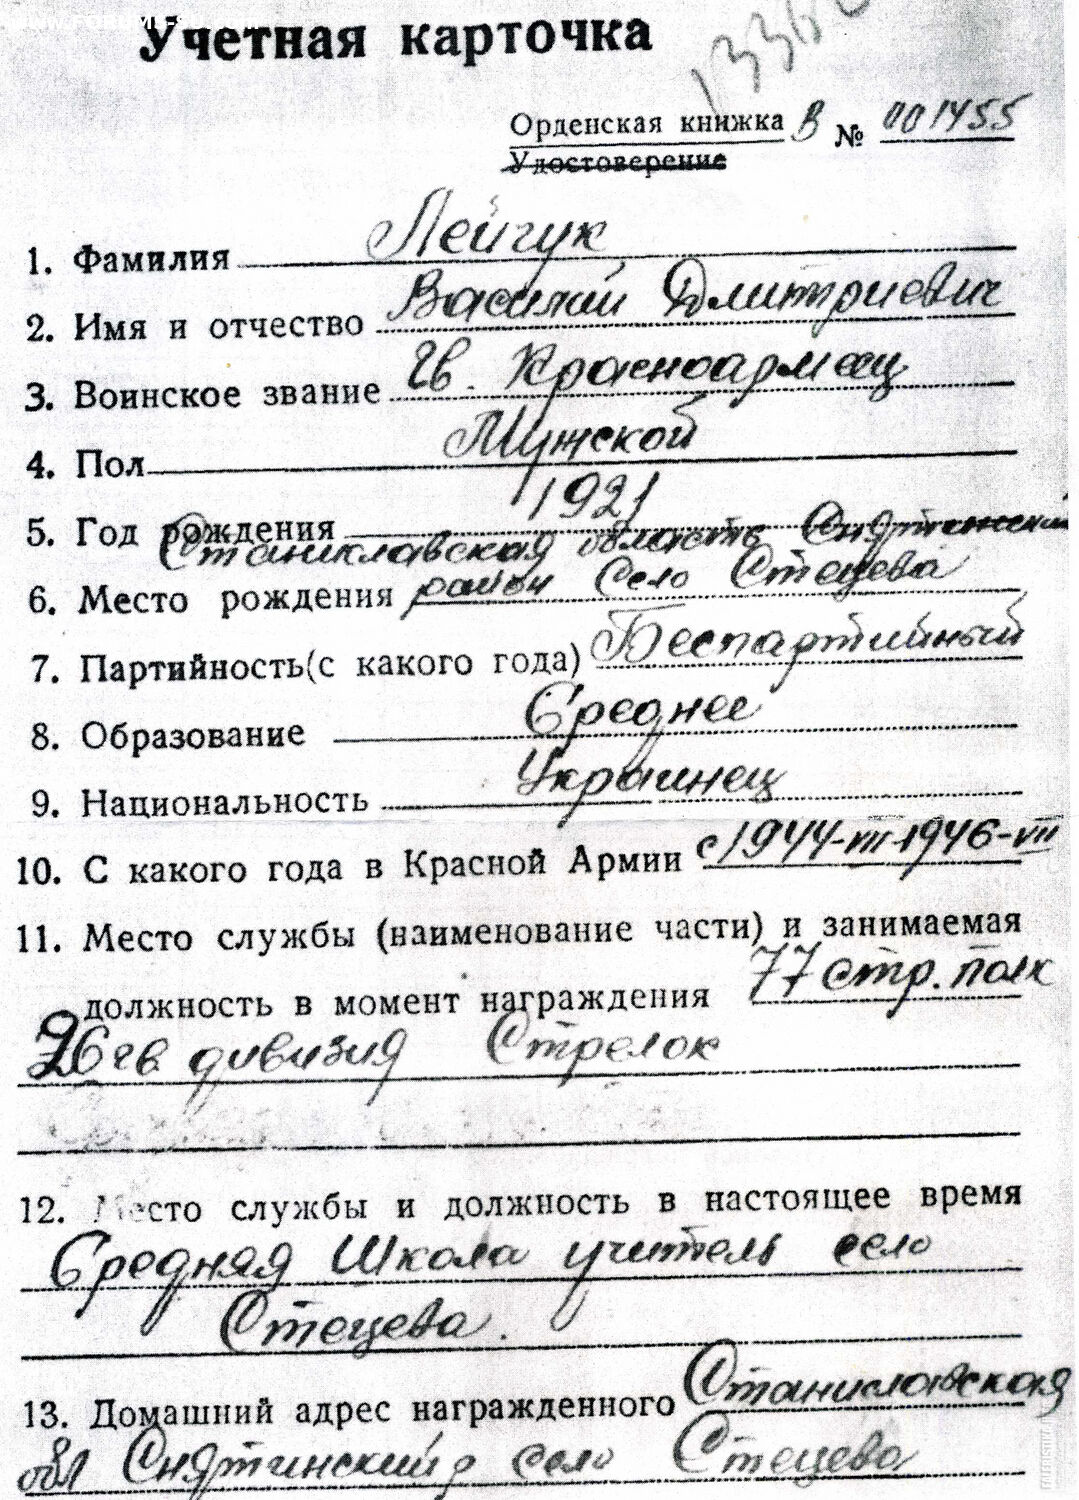 Учетная карточка
Орденская книжка В № 001455
Удостоверение
1. Фамилия Лейчук
2. Имя и отчество Василий Дмитриевич
3. Воинское звание Гв. Красноармеец
4. Пол Мужской
5. Год рождения 1921
Станиславская область Снятинский
6. Место рождения район село Стецева
7. Партийность(с какого года) Беспартийный
8. Образование Среднее
9. Национальность Украинец
10. С какого года в Красной Армии с 1944-VIII-1946-VII
11. Место службы (наименование части) и занимаемая
должность в момент награждения 77 стр. полк
26 гв. дивизия Стрелок
12. Место службы и должность в настоящее время
Средняя Школа учитель село
Стецева.
13. Домашний адрес награжденного Станиславская
обл Снятинский р село Стецева